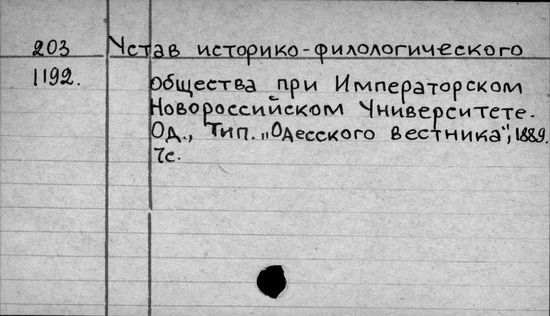 203 Устав историко-филологического
1192. общества при Императорском
Новороссийском Университете.
Од., Тип. „Одесского вестника", 1889.
7с.